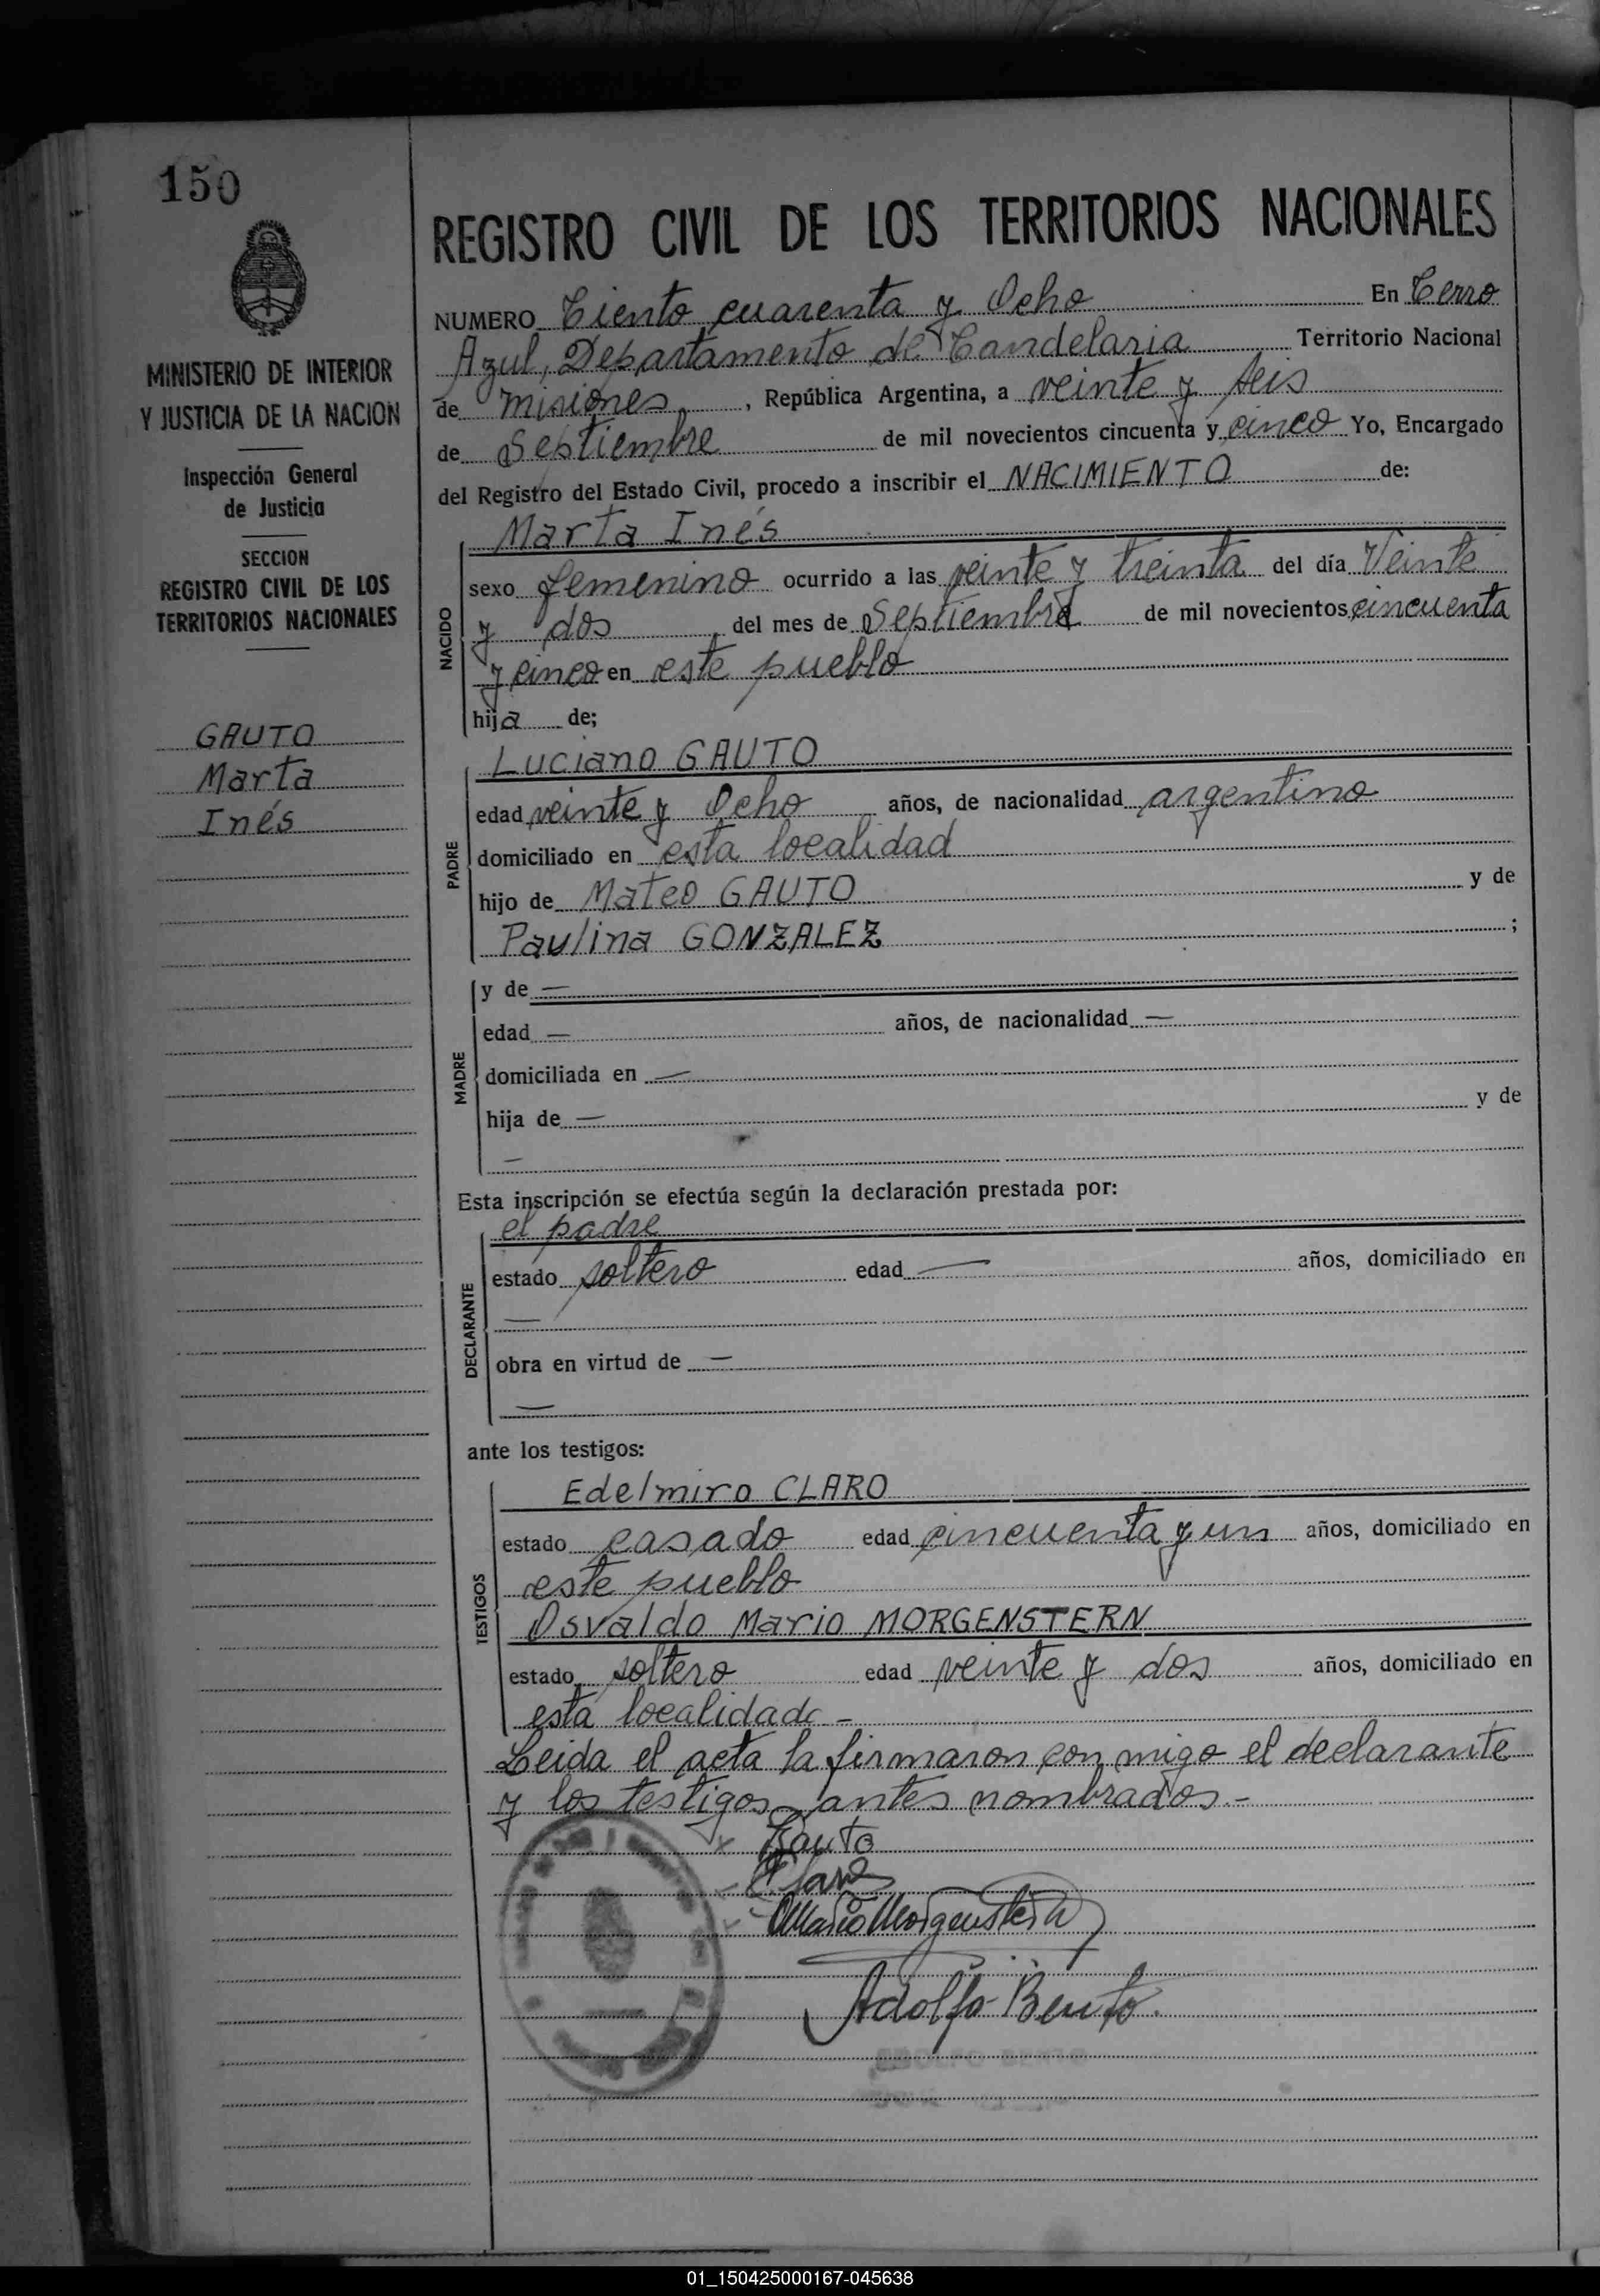 150
MINISTERIO DE INTERIOR
Y JUSTICIA DE LA NACION
Inspección General
de Justicia
SECCION
REGISTRO CIVIL DE LOS
TERRITORIOS NACIONALES
GAUTO
Marta
Inés
REGISTRO CIVIL DE LOS TERRITORIOS NACIONALES
NUMERO Ciento cuarenta y Ocho En Cerro
Azul, Departamento de Candelaria Territorio Nacional
de Misiones, República Argentina, a veinte y seis
de Septiembre de mil novecientos cincuenta y cinco Yo, Encargado
del Registro del Estado Civil, procedo a inscribir el NACIMIENTO de:
NACIDO
Marta Inés
sexo femenino ocurrido a las veinte y treinta del día Veinte
y dos del mes de Septiembre de mil novecientos cincuenta
y cinco en este pueblo
hija de;
PADRE
Luciano GAUTO
edad veinte y Ocho años, de nacionalidad argentino
domiciliado en esta localidad
hijo de Mateo GAUTO y de
Paulina GONZALEZ ;
MADRE
y de —
edad — años, de nacionalidad —
domiciliada en —
hija de — y de
—
Esta inscripción se efectúa según la declaración prestada por:
DECLARANTE
el padre
estado soltero edad — años, domiciliado en
—
obra en virtud de —
—
ante los testigos:
TESTIGOS
Edelmiro CLARO
estado casado edad cincuenta y un años, domiciliado en
este pueblo
Osvaldo Mario MORGENSTERN
estado soltero edad veinte y dos años, domiciliado en
esta localidad -
Leida el acta la firmaron con migo el declarante
y los testigos antes nombrados.-
Gauto
Claro
OMario Morgenstern
Adolfo Bento.
01_150425000167-045638